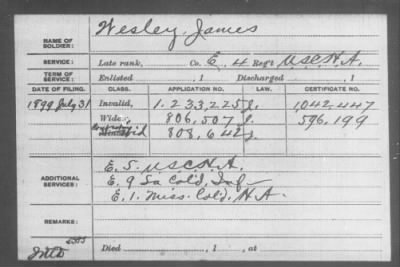 NAME OF SOLDIER: Wesley, James
SERVICE: Late rank, Co. E, 4 Reg't U.S.C.H.A.
TERM OF SERVICE: Enlisted , 1 Discharged , 1
DATE OF FILING. CLASS. APPLICATION NO. LAW. CERTIFICATE NO.
1899 July 31 Invalid, 1.233,225 J. 1,042,447
Widow, 806,507 J. 596,199
Wid 808,642 J.
ADDITIONAL SERVICES: E. 5. U.S.C.H.A.
E. 9 La Col'd. Inf.
E. 1. Miss. Col'd. H.A.
REMARKS:
Died , 1 , at